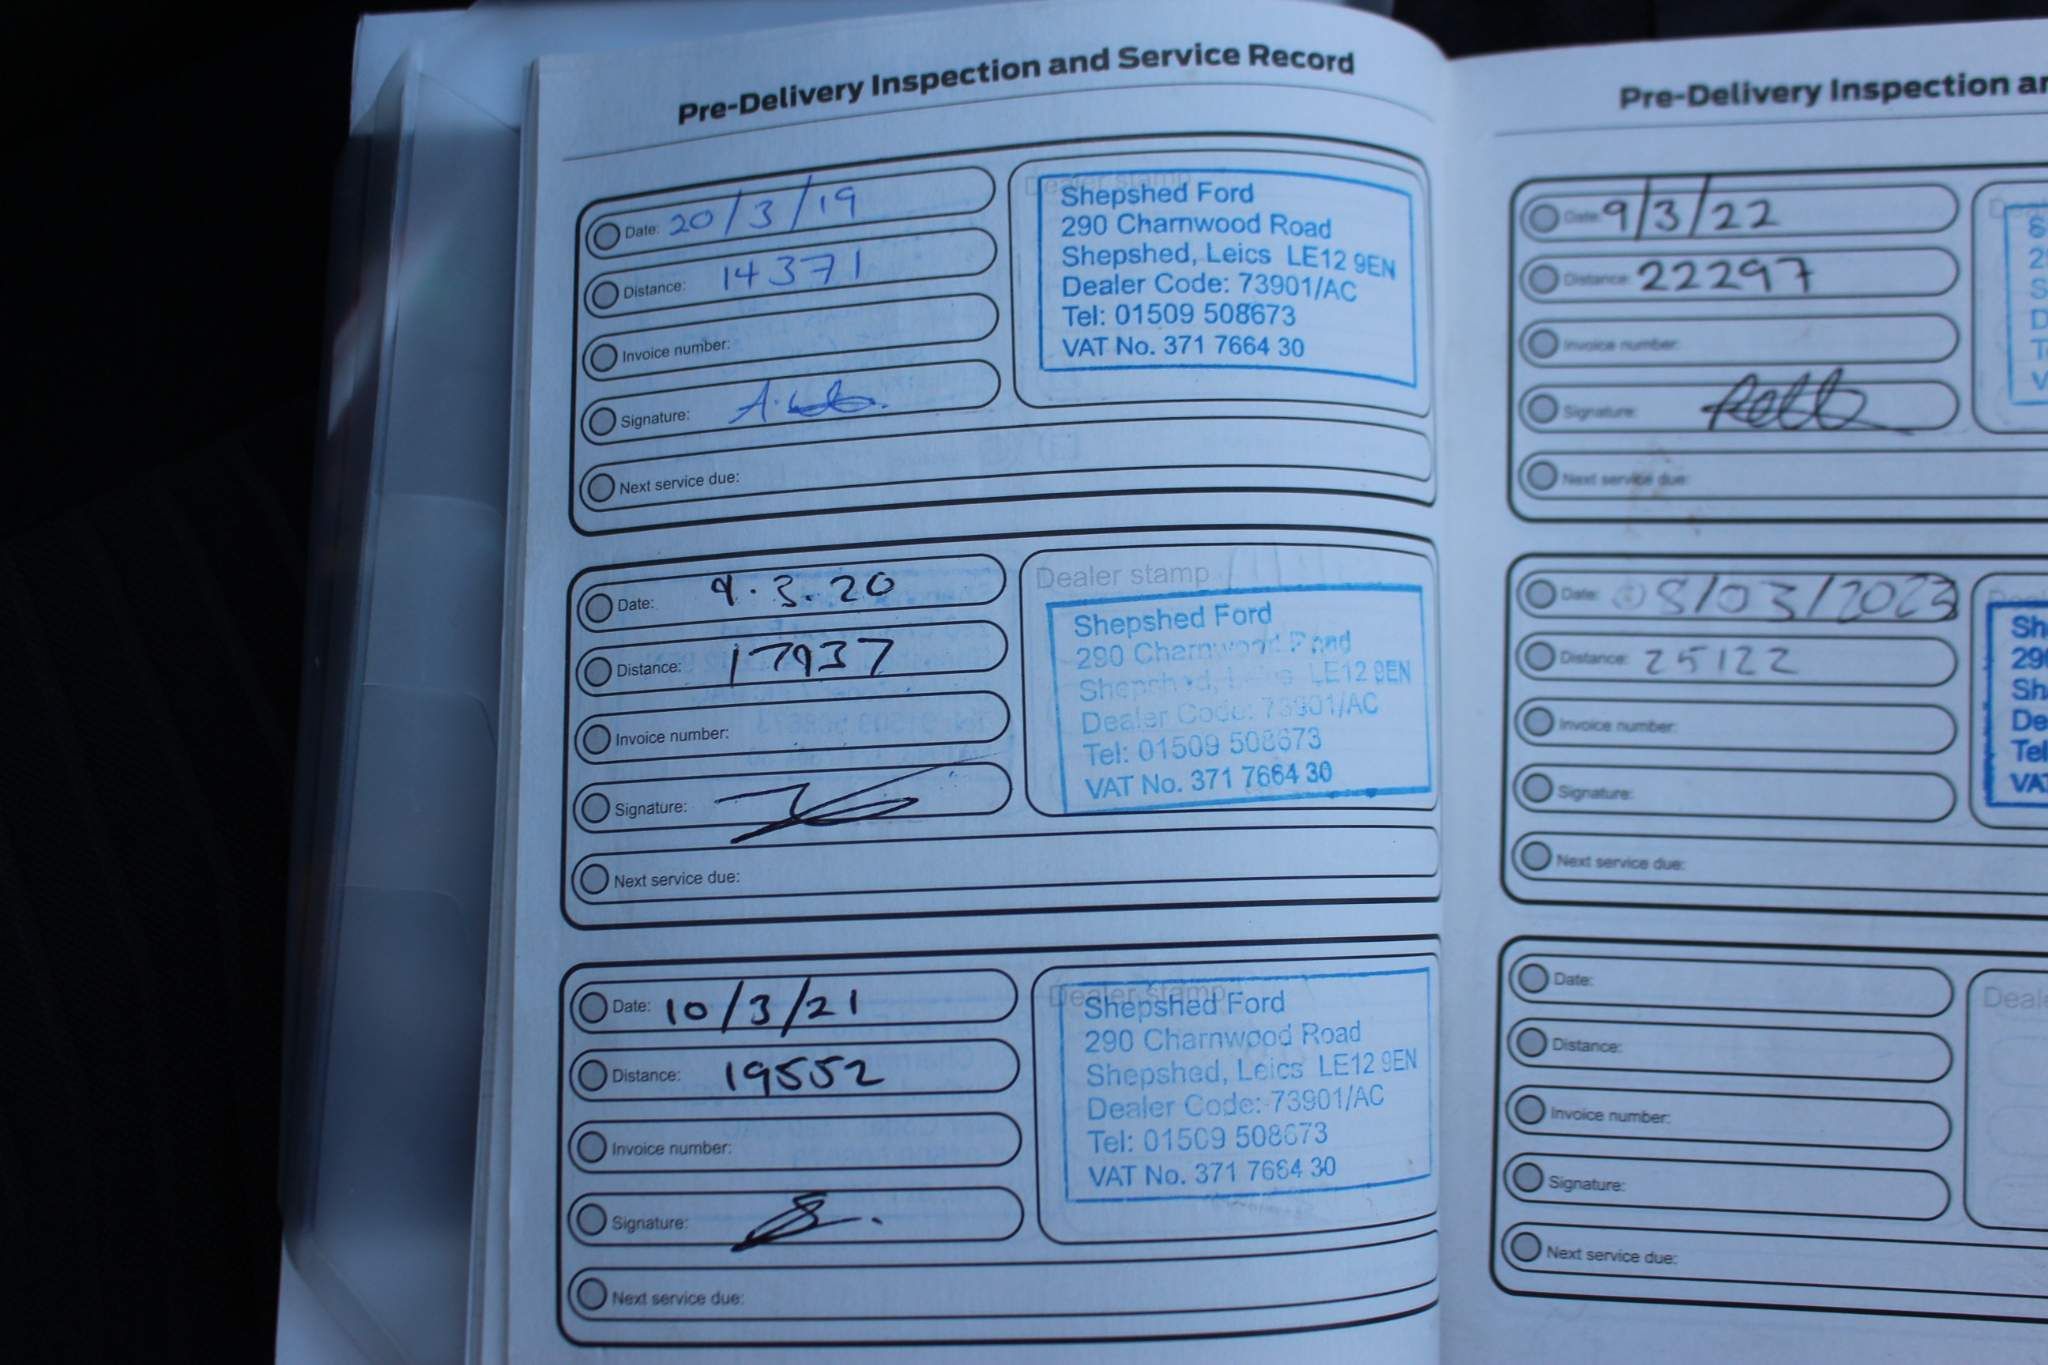 Pre-Delivery Inspection and Service Record
Date: 20/3/19
Distance: 14371
Invoice number:
Signature:
Next service due:
Dealer stamp
Shepshed Ford
290 Charnwood Road
Shepshed, Leics LE12 9EN
Dealer Code: 73901/AC
Tel: 01509 508673
VAT No. 371 7664 30
Date: 9.3.20
Distance: 17937
Invoice number:
Signature:
Next service due:
Dealer stamp
Shepshed Ford
290 Charnwood Road
Shepshed, Leics LE12 9EN
Dealer Code: 73901/AC
Tel: 01509 508673
VAT No. 371 7664 30
Date: 10/3/21
Distance: 19552
Invoice number:
Signature:
Next service due:
Dealer stamp
Shepshed Ford
290 Charnwood Road
Shepshed, Leics LE12 9EN
Dealer Code: 73901/AC
Tel: 01509 508673
VAT No. 371 7664 30
Pre-Delivery Inspection an
Date: 9/3/22
Distance: 22297
Invoice number:
Signature:
Next service due:
De
S
29
S
D
T
V
Date: 08/03/2023
Distance: 25122
Invoice number:
Signature:
Next service due:
Sh
290
Sh
De
Tel
VA
Date:
Distance:
Invoice number:
Signature:
Next service due:
Deal